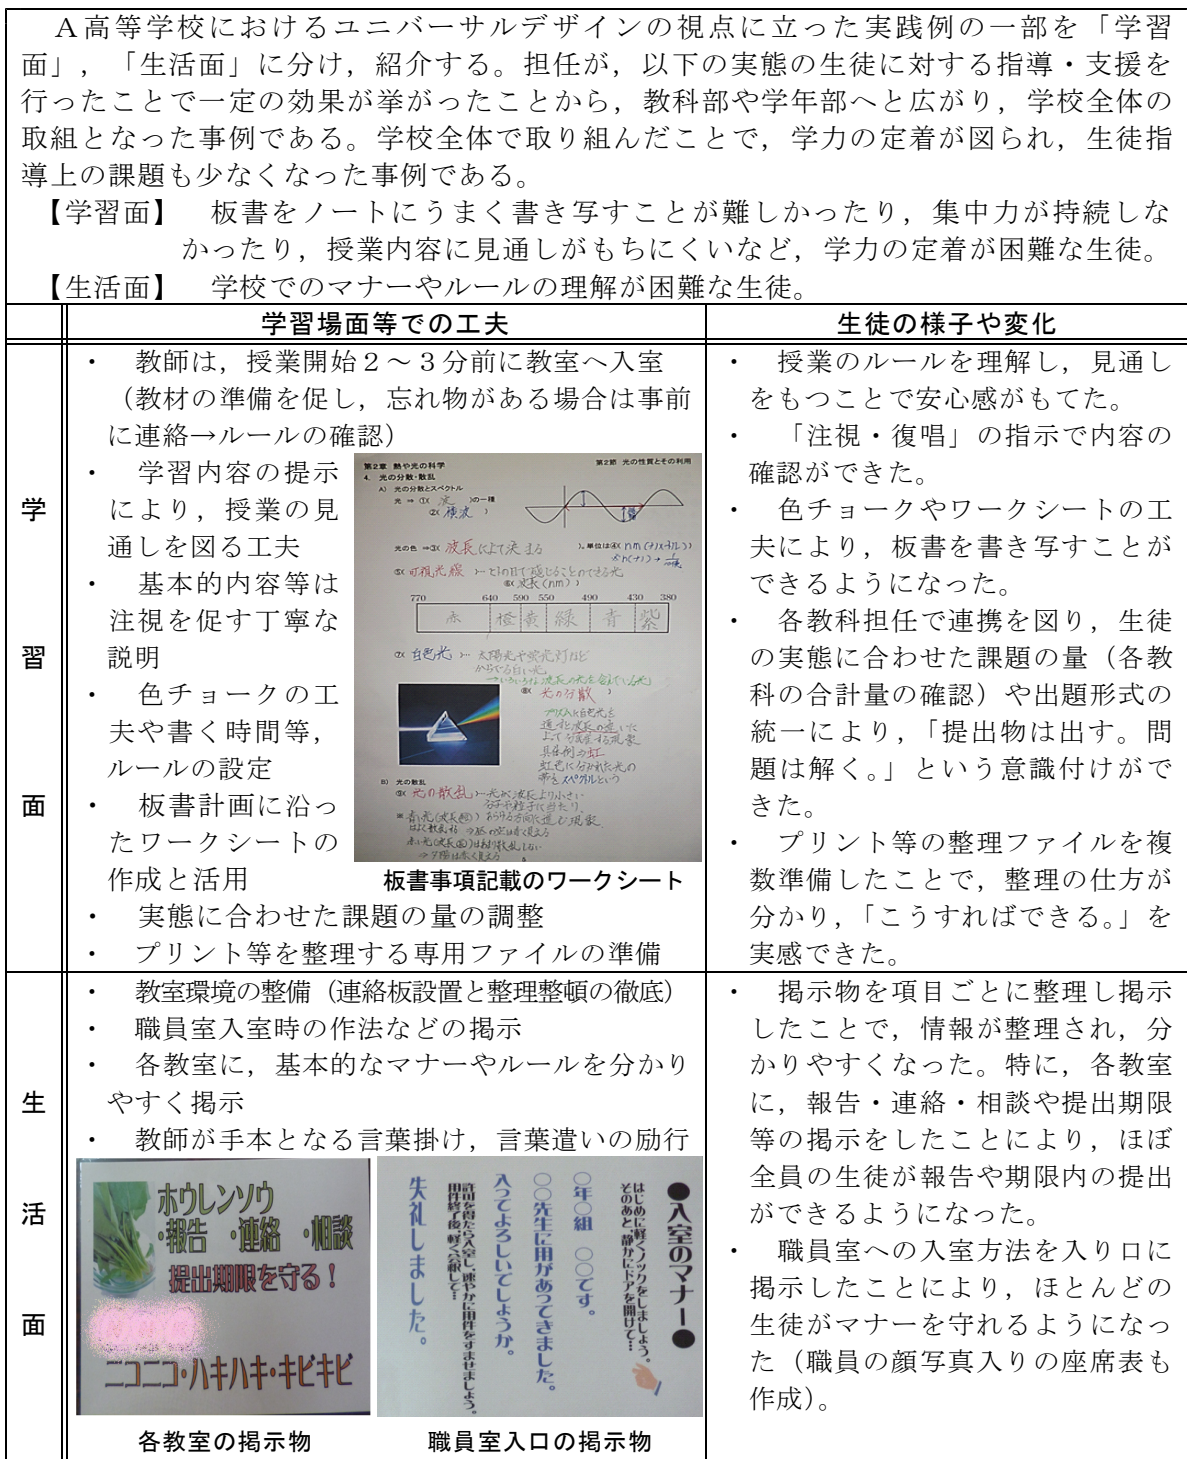 Ａ高等学校におけるユニバーサルデザインの視点に立った実践例の一部を「学習
面」，「生活面」に分け，紹介する。担任が，以下の実態の生徒に対する指導・支援を
行ったことで一定の効果が挙がったことから，教科部や学年部へと広がり，学校全体の
取組となった事例である。学校全体で取り組んだことで，学力の定着が図られ，生徒指
導上の課題も少なくなった事例である。
【学習面】　板書をノートにうまく書き写すことが難しかったり，集中力が持続しな
かったり，授業内容に見通しがもちにくいなど，学力の定着が困難な生徒。
【生活面】　学校でのマナーやルールの理解が困難な生徒。
学習場面等での工夫
生徒の様子や変化
学習面
・　教師は，授業開始２～３分前に教室へ入室
（教材の準備を促し，忘れ物がある場合は事前
に連絡→ルールの確認）
・　学習内容の提示
により，授業の見
通しを図る工夫
・　基本的内容等は
注視を促す丁寧な
説明
・　色チョークの工
夫や書く時間等，
ルールの設定
・　板書計画に沿っ
たワークシートの
作成と活用
・　実態に合わせた課題の量の調整
・　プリント等を整理する専用ファイルの準備
第2章 熱や光の科学
第2節 光の性質とその利用
4. 光の分散・散乱
A) 光の分散とスペクトル
光 ⇒ ①( 波 )の一種
②( 横波 )
光の色 ⇒③( 波長によって決まる )。単位は④( nm (ナノメートル) )
⑤( 可視光線 )…ヒトの目で感じることのできる光
⑥( 波長(nm) )
770 640 590 550 490 430 380
赤 橙 黄 緑 青 紫
⑦( 白色光 )… 太陽光や蛍光灯など
からでる白い光
⑧( 光の分散 )
プリズムに白色光を
通すと波長の違いに
よって分散する現象
具体例⇒虹
虹色に分かれた光の
帯をスペクトルという
B) 光の散乱
⑨( 光の散乱 )…光が波長より小さい
分子や粒子に当たり、
あらゆる方向に進む現象
板書事項記載のワークシート
・　授業のルールを理解し，見通し
をもつことで安心感がもてた。
・　「注視・復唱」の指示で内容の
確認ができた。
・　色チョークやワークシートの工
夫により，板書を書き写すことが
できるようになった。
・　各教科担任で連携を図り，生徒
の実態に合わせた課題の量（各教
科の合計量の確認）や出題形式の
統一により，「提出物は出す。問
題は解く。」という意識付けがで
きた。
・　プリント等の整理ファイルを複
数準備したことで，整理の仕方が
分かり，「こうすればできる。」を
実感できた。
生活面
・　教室環境の整備（連絡板設置と整理整頓の徹底）
・　職員室入室時の作法などの掲示
・　各教室に，基本的なマナーやルールを分かり
やすく掲示
・　教師が手本となる言葉掛け，言葉遣いの励行
ホウレンソウ
・報告 ・連絡 ・相談
提出期限を守る！
ニコニコ・ハキハキ・キビキビ
各教室の掲示物
●入室のマナー●
はじめに軽くノックをしましょう。
そのあと、静かにドアを開けて…
〇年〇組 〇〇です。
〇〇先生に用があってきました。
入ってよろしいでしょうか。
許可を得たら入室し、速やかに用件をすませましょう。
用件終了後、軽く会釈して…
失礼しました。
職員室入口の掲示物
・　掲示物を項目ごとに整理し掲示
したことで，情報が整理され，分
かりやすくなった。特に，各教室
に，報告・連絡・相談や提出期限
等の掲示をしたことにより，ほぼ
全員の生徒が報告や期限内の提出
ができるようになった。
・　職員室への入室方法を入り口に
掲示したことにより，ほとんどの
生徒がマナーを守れるようになっ
た（職員の顔写真入りの座席表も
作成）。